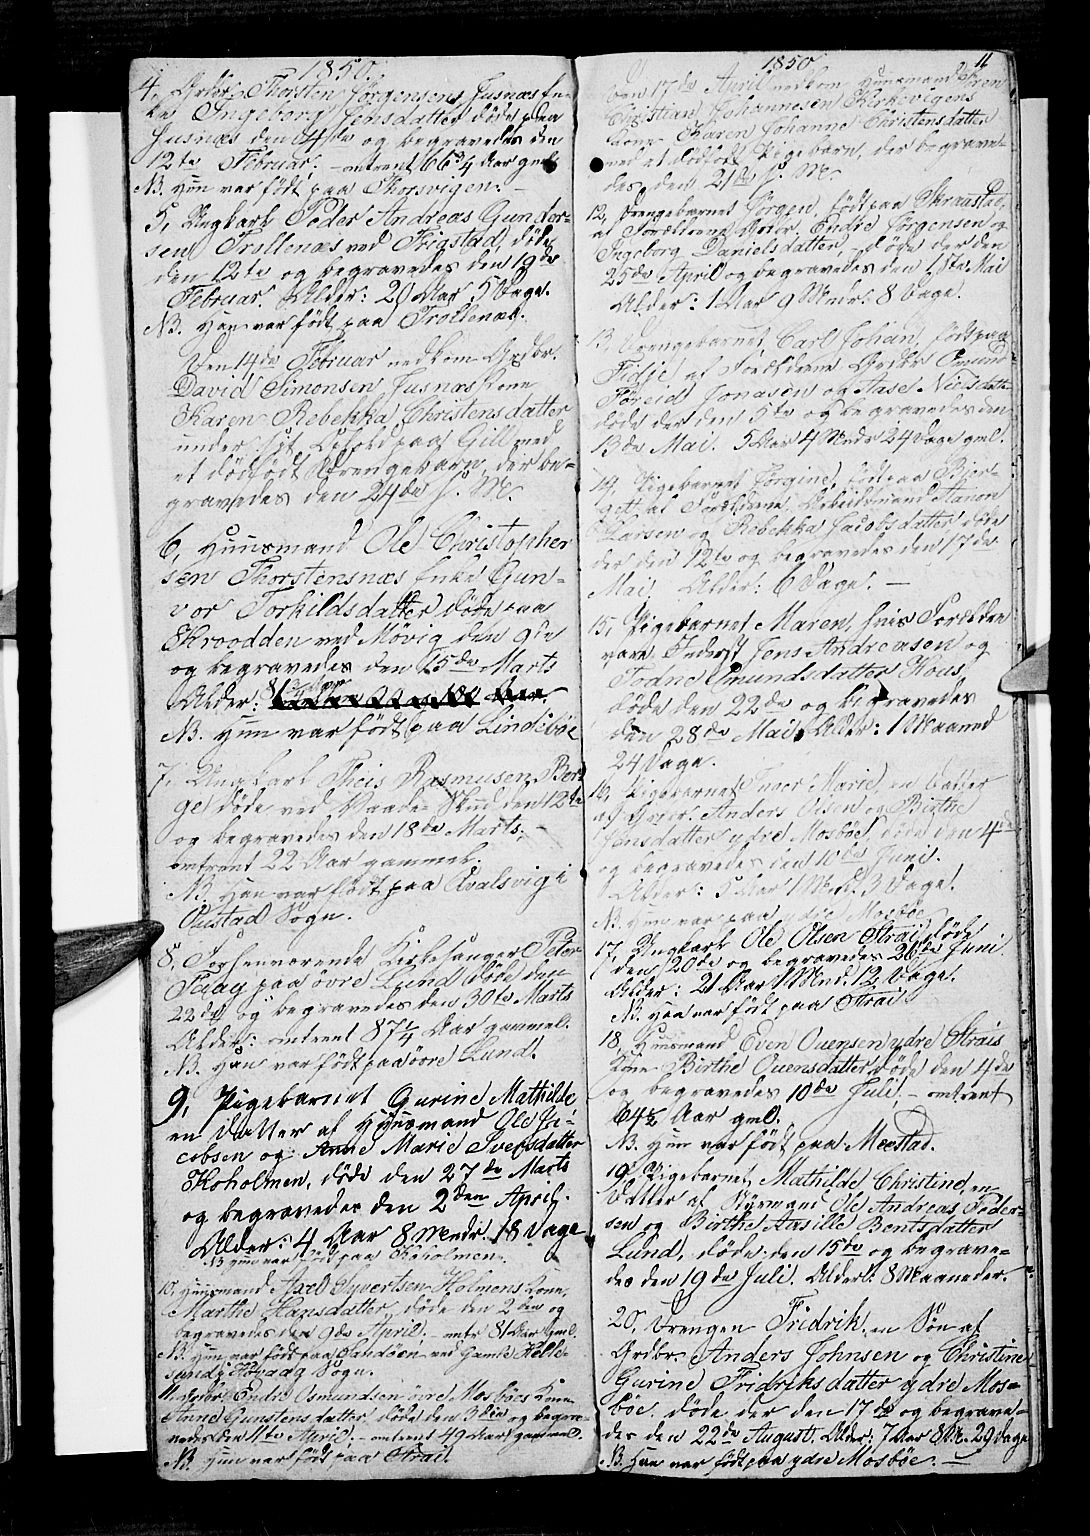 1850.
4, Grdbr. Thorsten Jørgensens Jusnæs En-
ke Ingeborg Jensdatter døde paa
Jusnæs den 4de og begravedes den
12te Februar, omtrent 66 3/4 Aar gml.
NB. Hun var født paa Thorsvigen.
5, Ungkarl Peder Andreas Gunder-
sen Trollenæs ved Frigstad, døde
den 12te og begravedes den 19de
Februar. Alder: 20 Aar 5 Dage.
NB. Han var født paa Trollenæs.
Den 14de Februar nedkom Grdbr.
David Simonsen Jusnæs Kone
Karen Rebekka Christensdatter
under sit Ophold paa Gill med
et dødfødt Drengebarn, der be-
gravedes den 24de s. M.
6, Huusmand Ole Christopher
sen Thorstensnæs Enke Gun-
vor Torkildsdatter døde paa
Kroodden ved Møvig den 9de
og begravedes den 15de Marts
Alder:
NB. Hun var født paa Lindebøe
7, Ungkarl Theis Rasmusen Ber-
ge døde ved Vaade-Skud den 12te
og begravedes den 18de Marts.
omtrent 22 Aar gammel.
NB. Han var født paa Qvalsvig i
Oustad Sogn.
8, Forhenværende Kirkesanger Peter
Faay paa øvre Lund døde den
22de og begravedes den 30te Marts
Alder: omtrent 87 1/4 Aar gammel.
NB. Han var født paa øvre Lund.
9, Pigebarnet Gurine Mathilde
en Datter af Huusmand Ole Ja-
cobsen og Anne Marie Svensdatter
Koholmen, døde den 27de Marts
og begravedes den 2den April.
Alder: 4 Aar 8 Mndr. 18 Dage
NB Hun var født paa Koholmen.
10, Huusmand Axel Syvertsen Holmens Kone,
Marthe Hansdatter, døde den 2den og
begravedes den 9de April. omtr 81 Aar gml.
NB. Hun var født paa Sandøen ved Gamle Helle-
sund i Høvaag Sogn.
11, Grdbr. Endre Osmundsen øvre Mosbøes Kone
Anne Gunstensdatter, døde den 3die og begra-
vedes den 11te April, omtrent 49 Aar gammel.
NB. Hun var født paa Strai.
1850 11
Den 17de April nedkom Huusmand Bren
Christian Johannesen Kirkevigens
Kone Karen Johanne Christensdatter
med et dødfødt Pigebarn, der begrave-
des den 21de s. M.
12, Drengebarnet Jørgen, født paa Skraastad,
af Forældrene Grdbr. Endre Jørgensen og
Ingeborg Danielsdatter, døde der den
25de April og begravedes den 1ste Mai
Alder: 1 Aar 9 Mndr. 8 Dage.
13, Drengebarnet Carl Johan, født paa
Fidje af Forældrene Grdbr Omund
Føreid Jonasen og Aase Nielsdatter
døde der den 5te og begravedes den
13de Mai. 5 Aar 4 Mndr 24 Dage gml.
14, Pigebarnet Jørgine, født paa Bjer-
get af Forældrene Arbeidsmand Hanon
Larsen og Rebekka Jacobsdatter døde
der den 12te og begravedes den 17de
Mai. Alder: 6 Dage.
15, Pigebarnet Maren, hvis Forældre
vare Inderst Jens Andreasen og
Todne Omundsdatter Kous,
døde den 22de og begravedes
den 28de Mai. Alder: 1 Maaned
24 Dage.
16, Pigebarnet Inger Marie, en Datter
af Grdbr. Anders Olsen og Birthe
Jensdatter ydre Mosbøe, døde den 4de
og begravedes den 10de Juni.
Alder: 5 Aar 1 M. 3 Dage.
NB. Hun var paa ydre Mosbøe
17, Ungkarl Ole Olsen Strai døde
den 20de og begravedes 26de Juni
Alder: 21 Aar 1 Mnd. 12 Dage.
NB. Han var født paa Strai
18, Huusmand Even Ouensen ydre Strais
Kone Birthe Ouensdatter døde den 4de
og begravedes 10de Juli, omtrent
64 1/2 Aar gml.
NB. Hun var født paa Meestad.
19, Pigebarnet Mathilde Christine, en
Datter af Styrmand Ole Andreas Peder-
sen og Birthe Aasille Bentsdatter
Lund, døde den 15de og begrave-
des den 19de Juli. Alder: 8 Maaneder.
20, Drengen Fridrik, en Søn af
Grdbr. Anders Johnsen og Christine
Gurine Fridriksdatter ydre Mos-
bøe, døde der den 17de og begrave-
des den 22de August. Alder: 7 Aar 8 M. 29 Dage
NB. Han var født paa ydre Mosbøe.